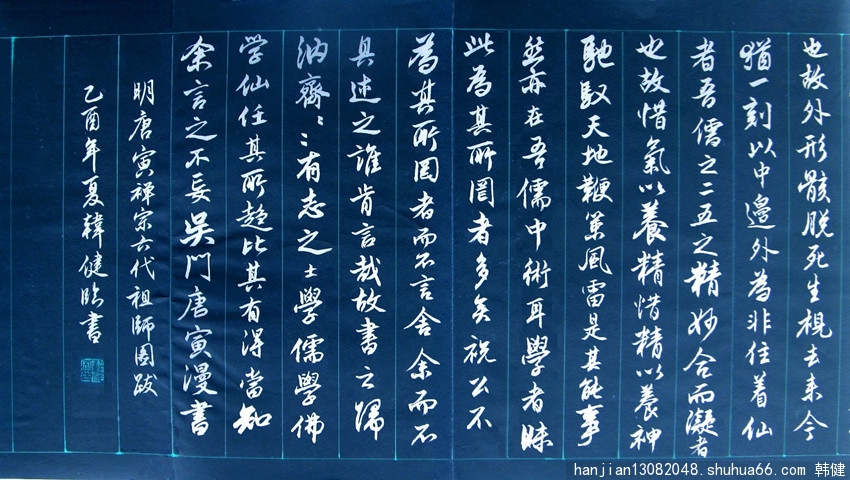 也故外形骸脱死生視去来今
猶一刻以中邊外為非住着仙
者吾儒之二五之精妙合而凝者
也故惜氣以養精惜精以養神
馳馭天地鞭策風雷是其能事
然亦在吾儒中術耳學者昧
此為其所罔者多矣祝公不
為其所罔者而不言舍余而不
具述之誰肯言哉故書之歸
訥齋〻〻有志之士學儒學佛
学仙任其所趨比其有得當知
余言之不妄吴門唐寅漫書
明唐寅禅宗六代祖師圖跋
乙酉年夏韓健臨書
hanjian13082048.shuhua66.com 韩健